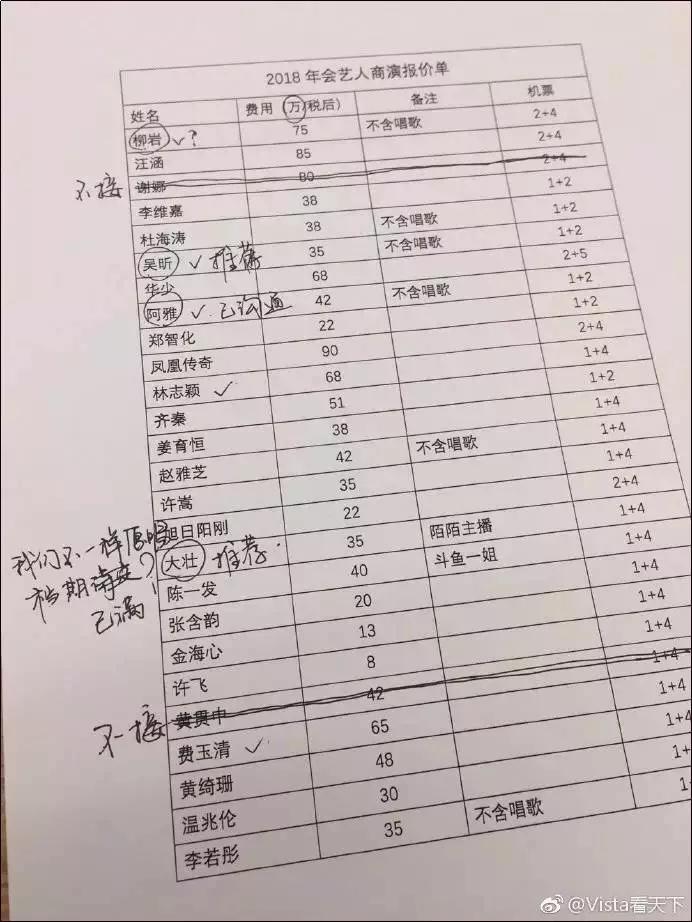 2018 年会艺人商演报价单
姓名 费用（万/税后） 备注 机票
柳岩 ✓? 75 不含唱歌 2+4
汪涵 85 2+4
不接 谢娜 80 2+4
李维嘉 38 1+2
杜海涛 38 不含唱歌 1+2
吴昕 ✓推荐 35 不含唱歌 1+2
华少 68 2+5
阿雅 ✓已沟通 42 不含唱歌 1+2
郑智化 22 1+2
凤凰传奇 90 2+4
林志颖 ✓ 68 1+4
齐秦 51 1+2
姜育恒 38 1+4
赵雅芝 42 不含唱歌 1+4
许嵩 35 1+4
旭日阳刚 22 2+4
我们不一样原唱
档期待定?
已满
大壮 推荐. 35 陌陌主播 1+4
陈一发 40 斗鱼一姐 1+4
张含韵 20 1+4
金海心 13 1+4
许飞 8 1+4
不接 黄贯中 42 1+4
费玉清 ✓ 65 1+4
黄绮珊 48 1+4
温兆伦 30 1+4
李若彤 35 不含唱歌
@Vista看天下